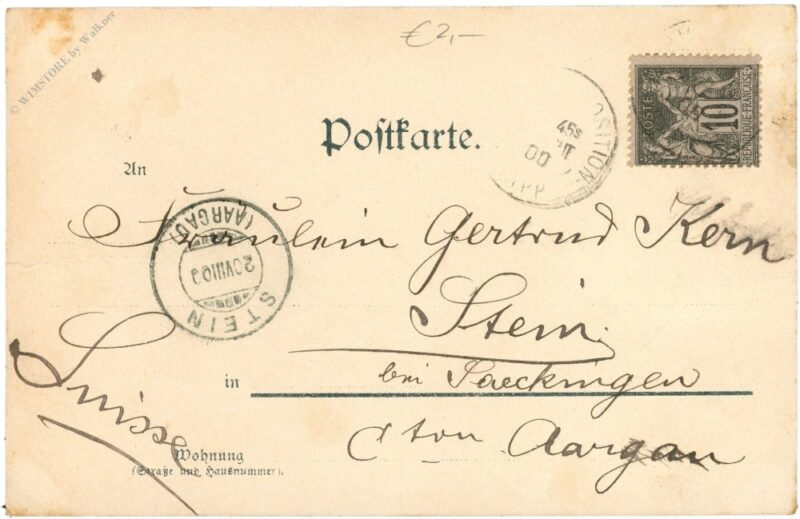 © WIMSTORE by Walkner
€ 2,-
POSTES
10
REPUBLIQUE FRANÇAISE
OSITION
45S
00
Postkarte.
An
Fräulein Gertrud Kern
STEIN
(AARGAU)
20 VIII 00
Stein.
bei Saeckingen
in
Cton Aargau
Suisse
Wohnung
(Straße und Hausnummer).